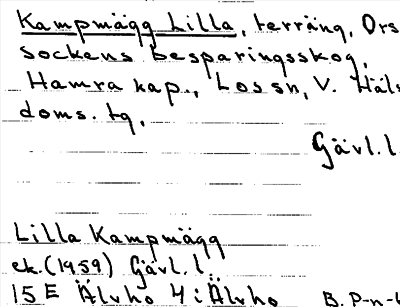 Kampmägg Lilla, terräng, Ors
sockens besparingsskog,
Hamra kap., Los sn, V. Häls
doms. tg,
Gävl.l.
Lilla Kampmägg
ek. (1959) Gävl.l.
15 E Älvho 4 i Älvho B. P-n-